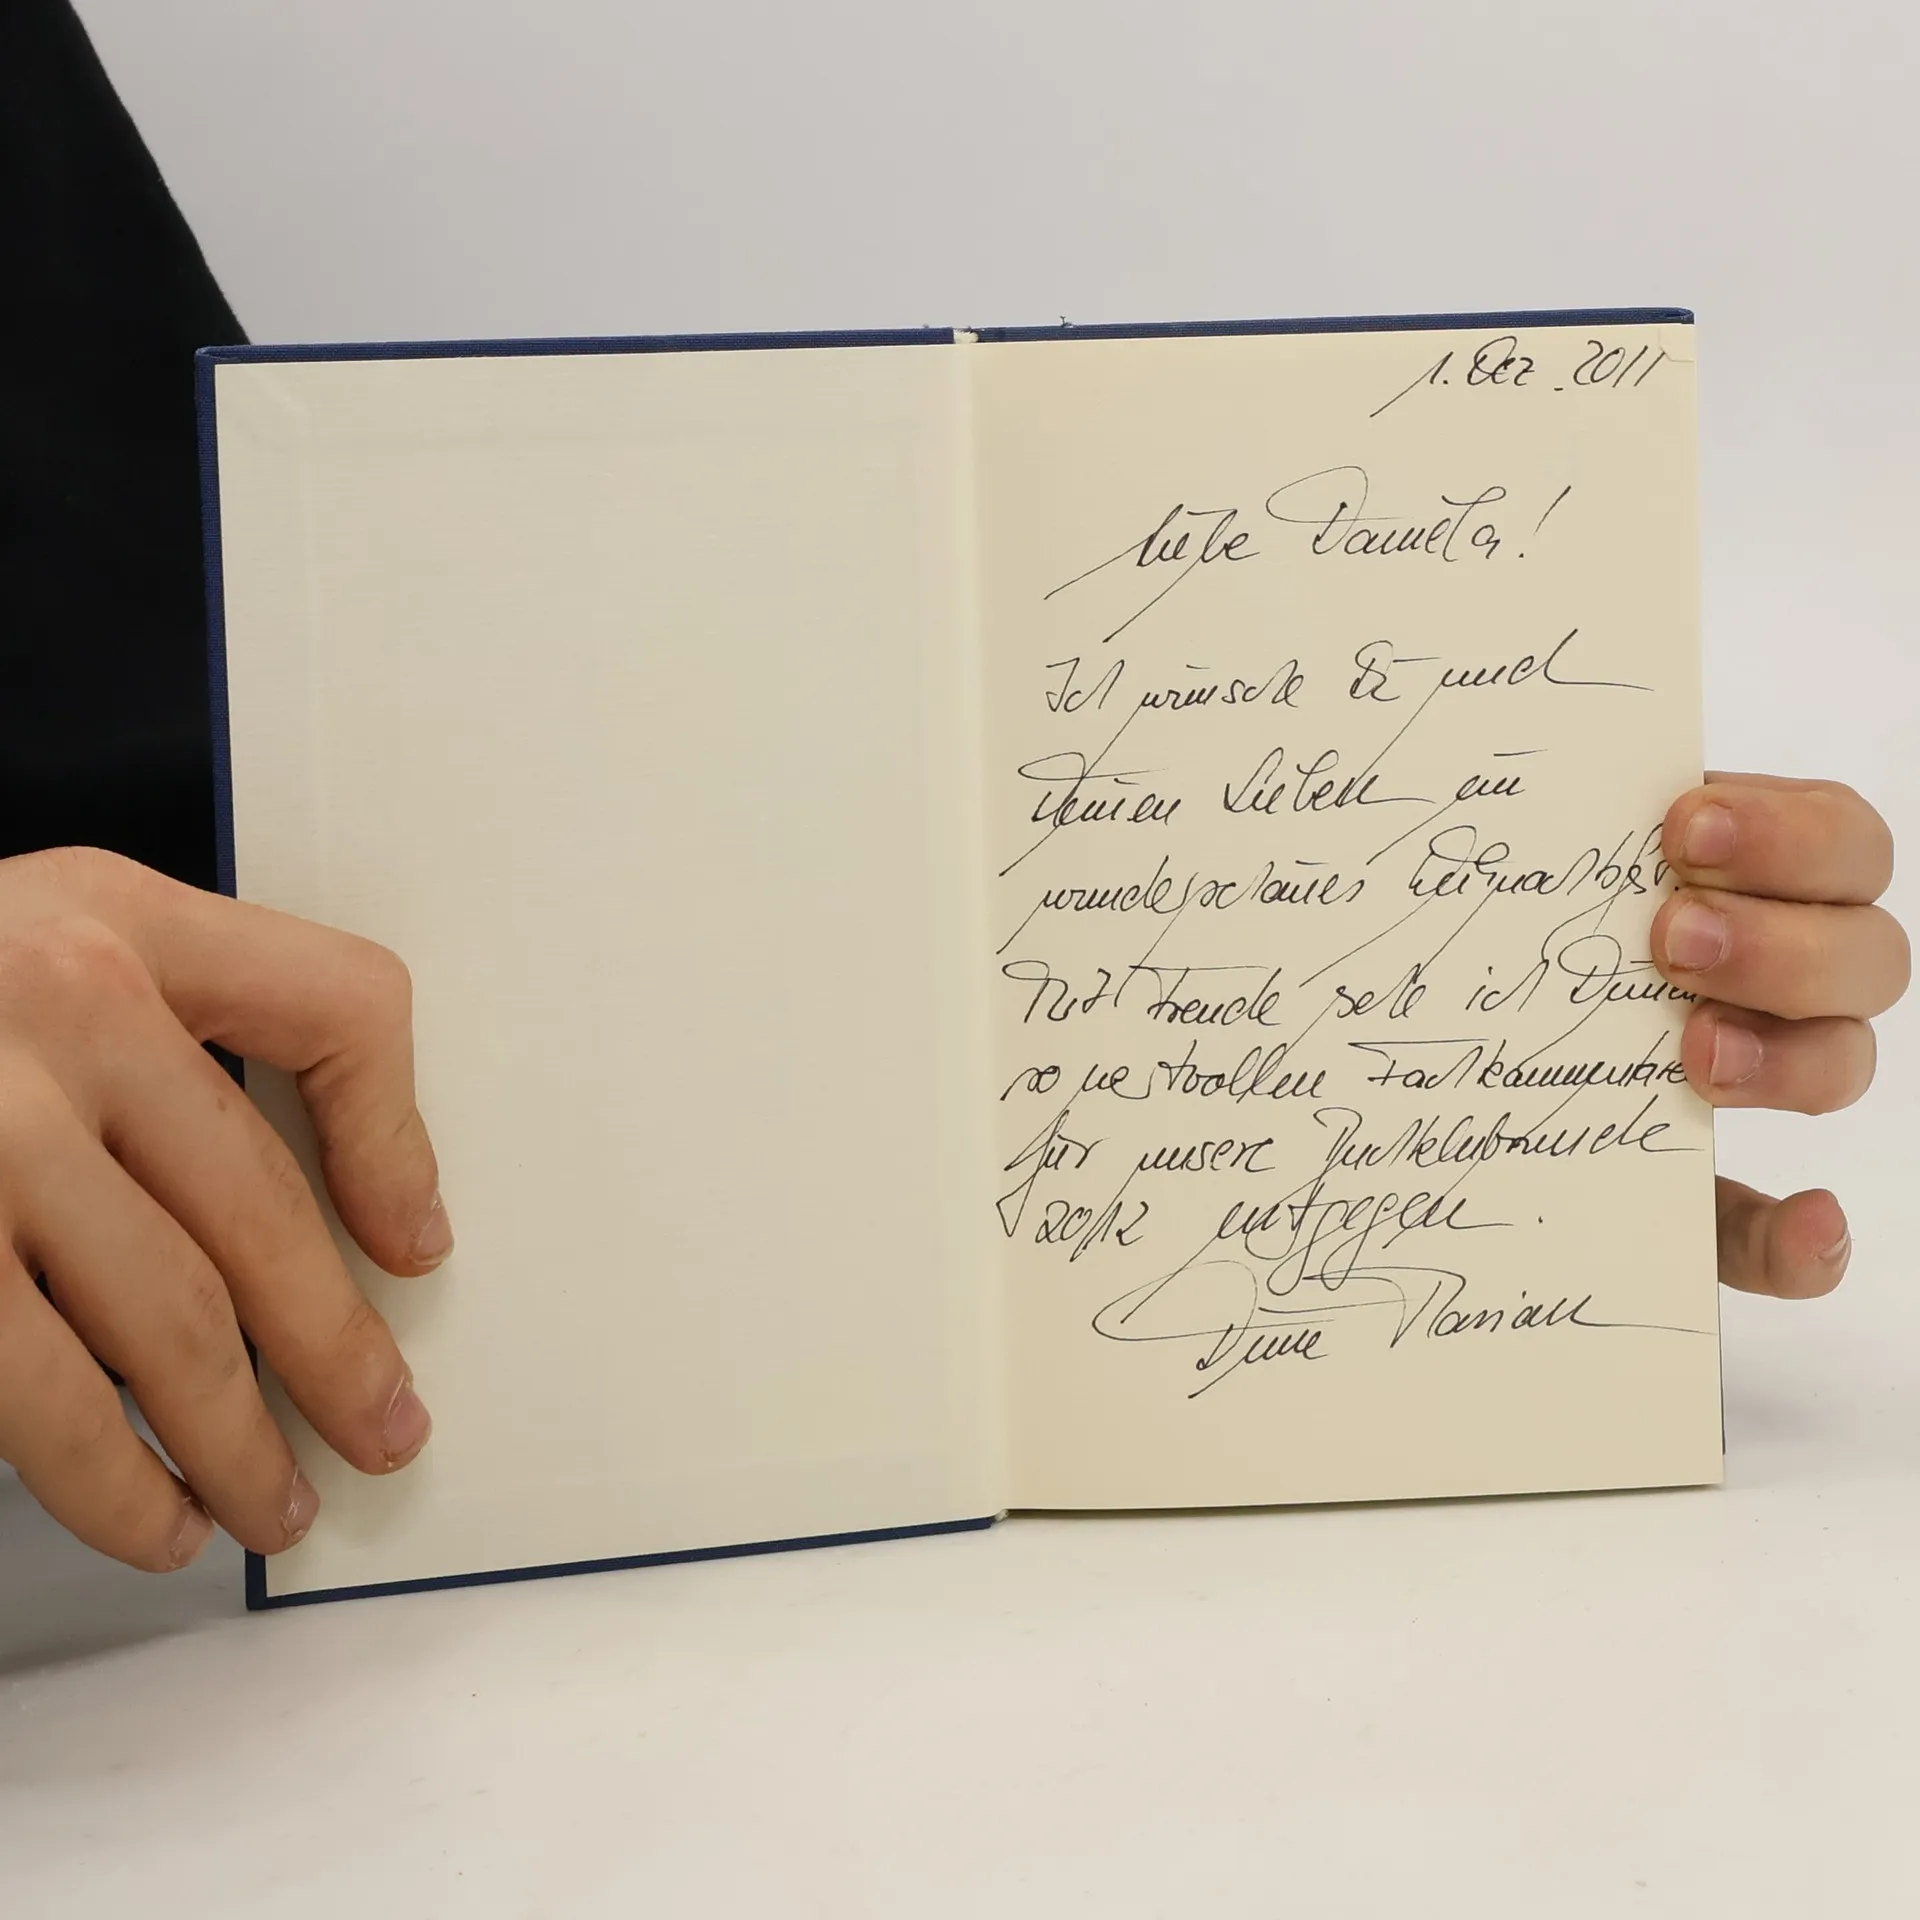 1. Dez. 2011
Liebe Daniela!
Ich wünsche Dir und
Deinen Lieben ein
wunderschönes Weihnachtsf
Mit Freude sehe ich Deinen
so wertvollen Fachkommentare
für unsere Buchklubrunde
2012 entgegen.
Deine Marian